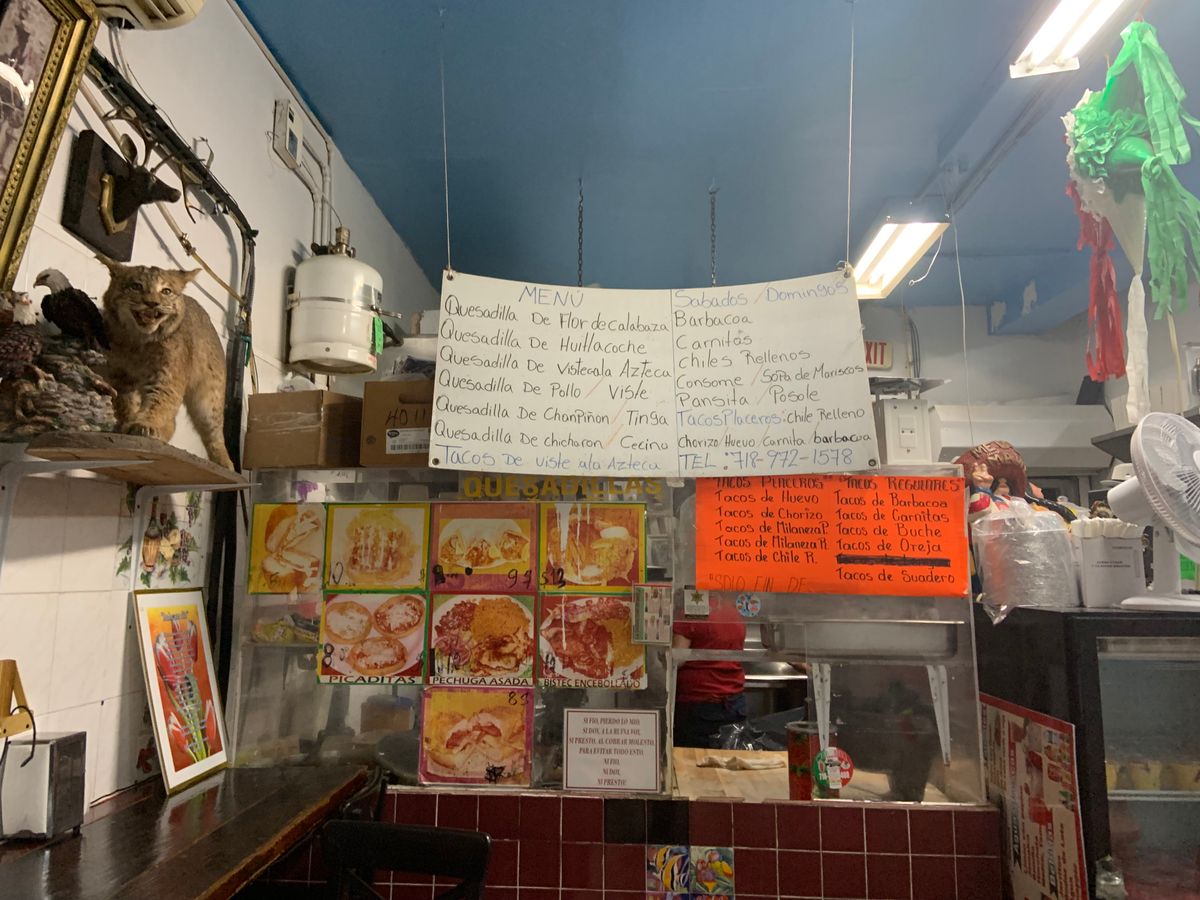 MENÚ
Quesadilla De Flor de calabaza
Quesadilla De Huitlacoche
Quesadilla De Vistecala Azteca
Quesadilla De Pollo / Viste
Quesadilla De Chanpiñon / Tinga
Quesadilla De chicharon / Cecina
Tacos De viste ala Azteca
Sabados / Domingos
Barbacoa
Carnitas
Chiles Rellenos
Consome / Sopa de Mariscos
Pansita / Posole
Tacos Placeros: Chile Relleno
Chorizo/Huevo/Carnita/barbacoa
TEL: 718-972-1578
EXIT
4011
QUESADILLAS
TACOS PLACEROS
Tacos de Huevo
Tacos de Chorizo
Tacos de Milaneza P.
Tacos de Milaneza R.
Tacos de Chile R.
"SOLO FIN DE
"TACOS REGULARES"
Tacos de Barbacoa
Tacos de Carnitas
Tacos de Buche
Tacos de Oreja
Tacos de Suadero
PICADITAS
PECHUGA ASADA
BISTEC ENCEBOLLADO
SI FIO, PIERDO LO MIO,
SI DOY, A LA RUINA VOY,
SI PRESTO, AL COBRAR MOLESTO,
PARA EVITAR TODO ESTO,
NI FIO,
NI DOY,
NI PRESTO!